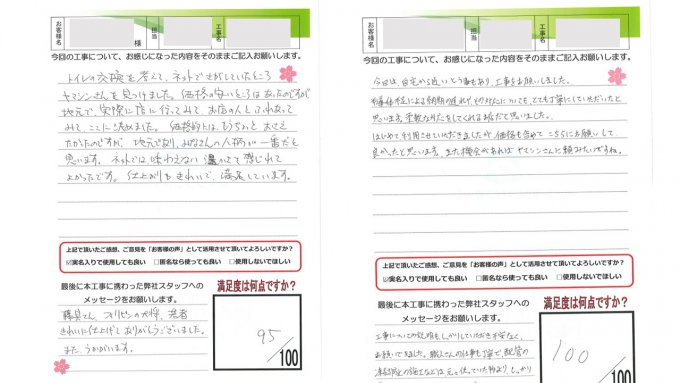 お客様名
様
担当
工事名
今回の工事について、お感じになった内容をそのままご記入お願いします。
トイレの交換を考えて、ネットでさがしていたところ
ヤマシンさんを見つけました。価格の安いところはあったのですが
地元で、実際に店に行ってみて、お店の人とふれあって
みて、ここに決めました。価格的には、もう少しおさえ
たかったのですが、地元であり、みなさんの人柄が一番だと
思います。ネットでは味わえない温かさを感じれて
よかったです。仕上がりもきれいで、満足しています。
上記で頂いたご感想、ご意見を「お客様の声」として活用させて頂いてよろしいですか?
☑実名入りで使用しても良い □匿名なら使っても良い □使用しないでほしい
最後に本工事に携わった弊社スタッフへの
メッセージをお願いします。
きれいに仕上げてありがとうございました。
また、うかがいます。
満足度は何点ですか?
95
/100
お客様名
担当
工事名
今回の工事について、お感じになった内容をそのままご記入お願いします。
今回は、自宅から近いという事もあり、工事をお願いしました。
による納期の遅れや対応についても、とても丁寧にしていただいたと
思います。柔軟な対応をしてくれる様だと思いました。
はじめて利用させていただきましたが、価格も含めてこちらにお願いして、
良かったと思います。また機会があればヤマシンさんに頼みたいですね。
上記で頂いたご感想、ご意見を「お客様の声」として活用させて頂いてよろしいですか?
☑実名入りで使用しても良い □匿名なら使っても良い □使用しないでほしい
最後に本工事に携わった弊社スタッフへの
メッセージをお願いします。
工事についての説明もしっかりしていただき不安なく、
お願いできました。職人さんの仕事も丁寧で配管の
の施工などは元々使っていた物より、しっかり
満足度は何点ですか?
100
/100